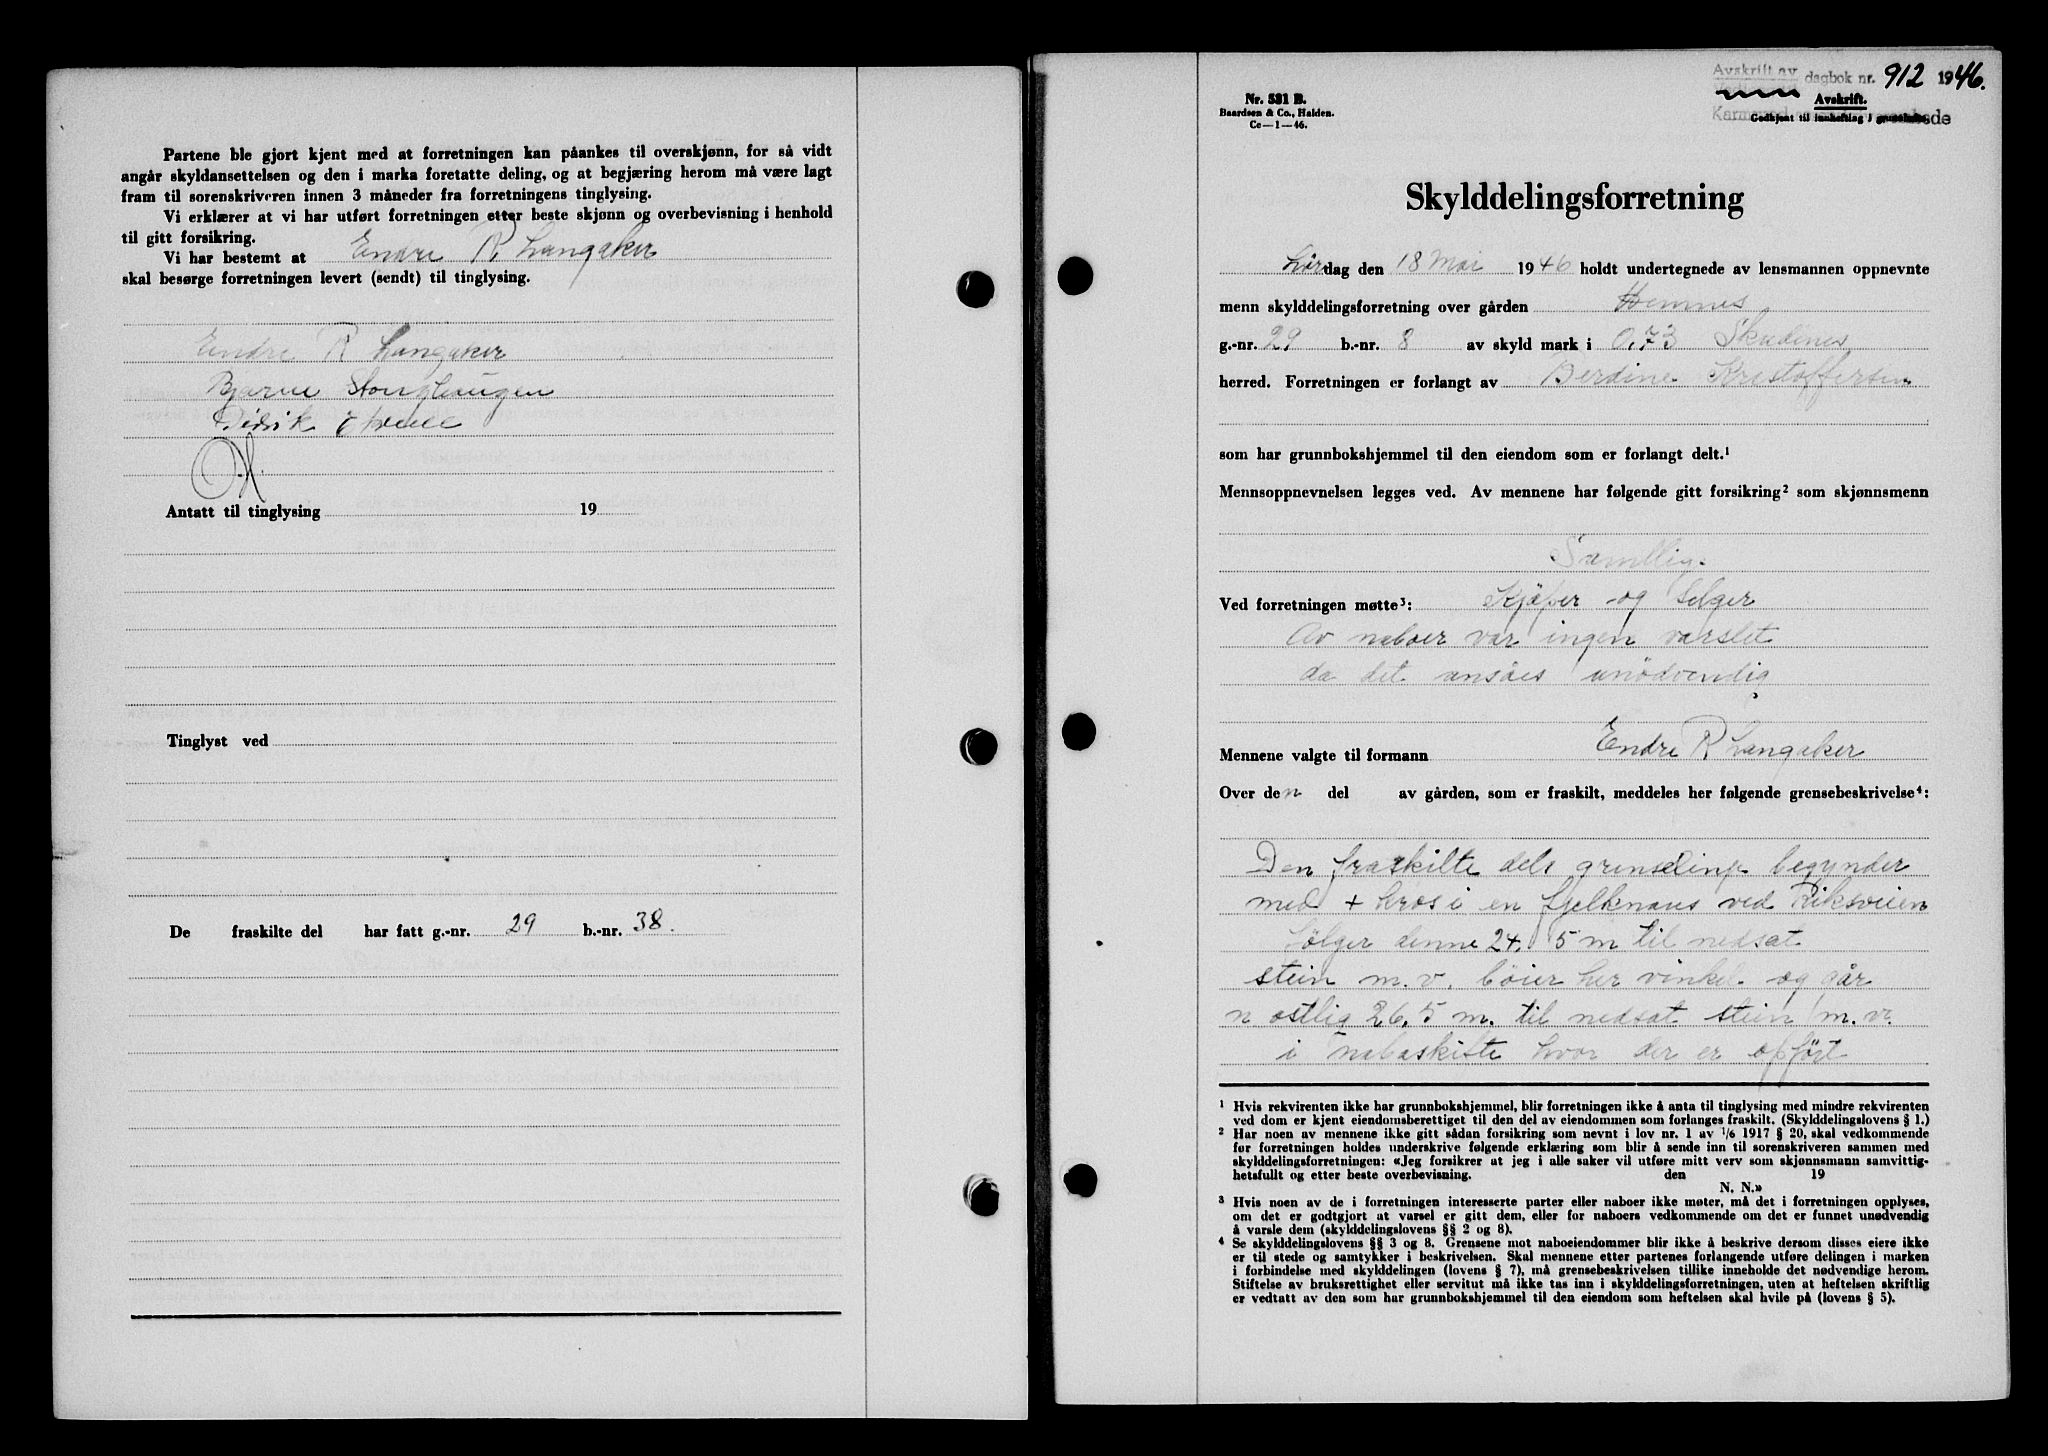 Partene ble gjort kjent med at forretningen kan påankes til overskjønn, for så vidt
angår skyldansettelsen og den i marka foretatte deling, og at begjæring herom må være lagt
fram til sorenskriveren innen 3 måneder fra forretningens tinglysing.
Vi erklærer at vi har utført forretningen etter beste skjønn og overbevisning i henhold
til gitt forsikring.
Vi har bestemt at Endre R Langaker
skal besørge forretningen levert (sendt) til tinglysing.
Endre R Langaker
Bjarne Stonghaugen
Didrik
Antatt til tinglysing 19
Tinglyst ved
De fraskilte del har fatt g.-nr. 29 b.-nr. 38.
Avskrift av dagbok nr. 912 1946.
Nr. 531 B.
Baardsen & Co., Halden.
Cc—1—46.
Avskrift.
Godkjent til innhefting i
Skylddelingsforretning
Lørdag den 18 Mai 1946 holdt undertegnede av lensmannen oppnevnte
menn skylddelingsforretning over gården Hemnes
g.-nr. 29 b.-nr. 8 av skyld mark i 0,73 Skudenes
herred. Forretningen er forlangt av Berdine Kristoffersen
som har grunnbokshjemmel til den eiendom som er forlangt delt.¹
Mennsoppnevnelsen legges ved. Av mennene har følgende gitt forsikring² som skjønnsmenn
Samtlig.
Ved forretningen møtte³: Kjøper og Selger
Av naboer var ingen varslet
da det ansåes unödvendig
Mennene valgte til formann Endre R Langaker
Over den del av gården, som er fraskilt, meddeles her følgende grensebeskrivelse⁴:
Den fraskilte dels grenselinje begynder
med + kros i en fjelknaus ved Riksveien
fölger denne 24,5 m til nedsat
stein m.v. böier her vinkel og går
n ostlig 26,5 m. til nedsat stein m.v.
i naboskifte hvor der er opfört
¹ Hvis rekvirenten ikke har grunnbokshjemmel, blir forretningen ikke å anta til tinglysing med mindre rekvirenten
ved dom er kjent eiendomsberettiget til den del av eiendommen som forlanges fraskilt. (Skylddelingslovens § 1.)
² Har noen av mennene ikke gitt sådan forsikring som nevnt i lov nr. 1 av ¹/6 1917 § 20, skal vedkommende
før forretningen holdes underskrive følgende erklæring som blir å sende inn til sorenskriveren sammen med
skylddelingsforretningen: «Jeg forsikrer at jeg i alle saker vil utføre mitt verv som skjønnsmann samvittig-
hetsfullt og etter beste overbevisning. den 19
N. N.»
³ Hvis noen av de i forretningen interesserte parter eller naboer ikke møter, må det i forretningen opplyses,
om det er godtgjort at varsel er gitt dem, eller for naboers vedkommende om det er funnet unødvendig
å varsle dem (skylddelingslovens §§ 2 og 8).
⁴ Se skylddelingslovens §§ 3 og 8. Grensene mot naboeiendommer blir ikke å beskrive dersom disses eiere ikke
er til stede og samtykker i beskrivelsen. Skal mennene etter partenes forlangende utføre delingen i marken
i forbindelse med skylddelingen (lovens § 7), må grensebeskrivelsen tillike inneholde det nødvendige herom.
Stiftelse av bruksrettighet eller servitut må ikke tas inn i skylddelingsforretningen, uten at heftelsen skriftlig
er vedtatt av den som har grunnbokshjemmel til den eiendom som heftelsen skal hvile på (lovens § 5).